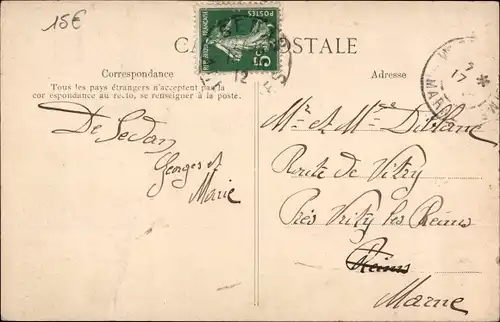 15€
CARTE POSTALE
POSTES
5
12
17
MARNE
Correspondance
Tous les pays étrangers n'acceptent pas la
correspondance au recto, se renseigner à la poste.
De Sedan
Georges et
Marie
Adresse
Mr et Mme
Route de Vitry
Près Vitry les Reims
Reims
Marne